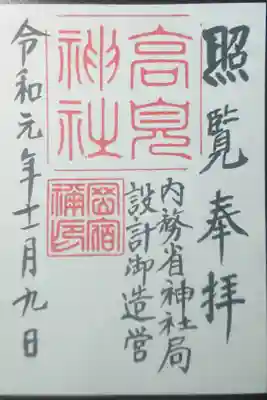 照覧奉拝
高見神社
内務省神社局
設計御造営
宿禰印
令和元年十一月九日